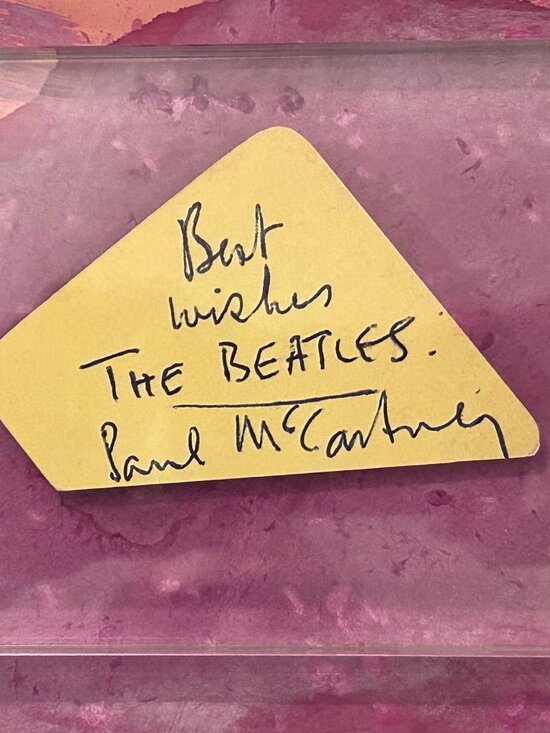 Best
wishes
THE BEATLES.
Paul McCartney